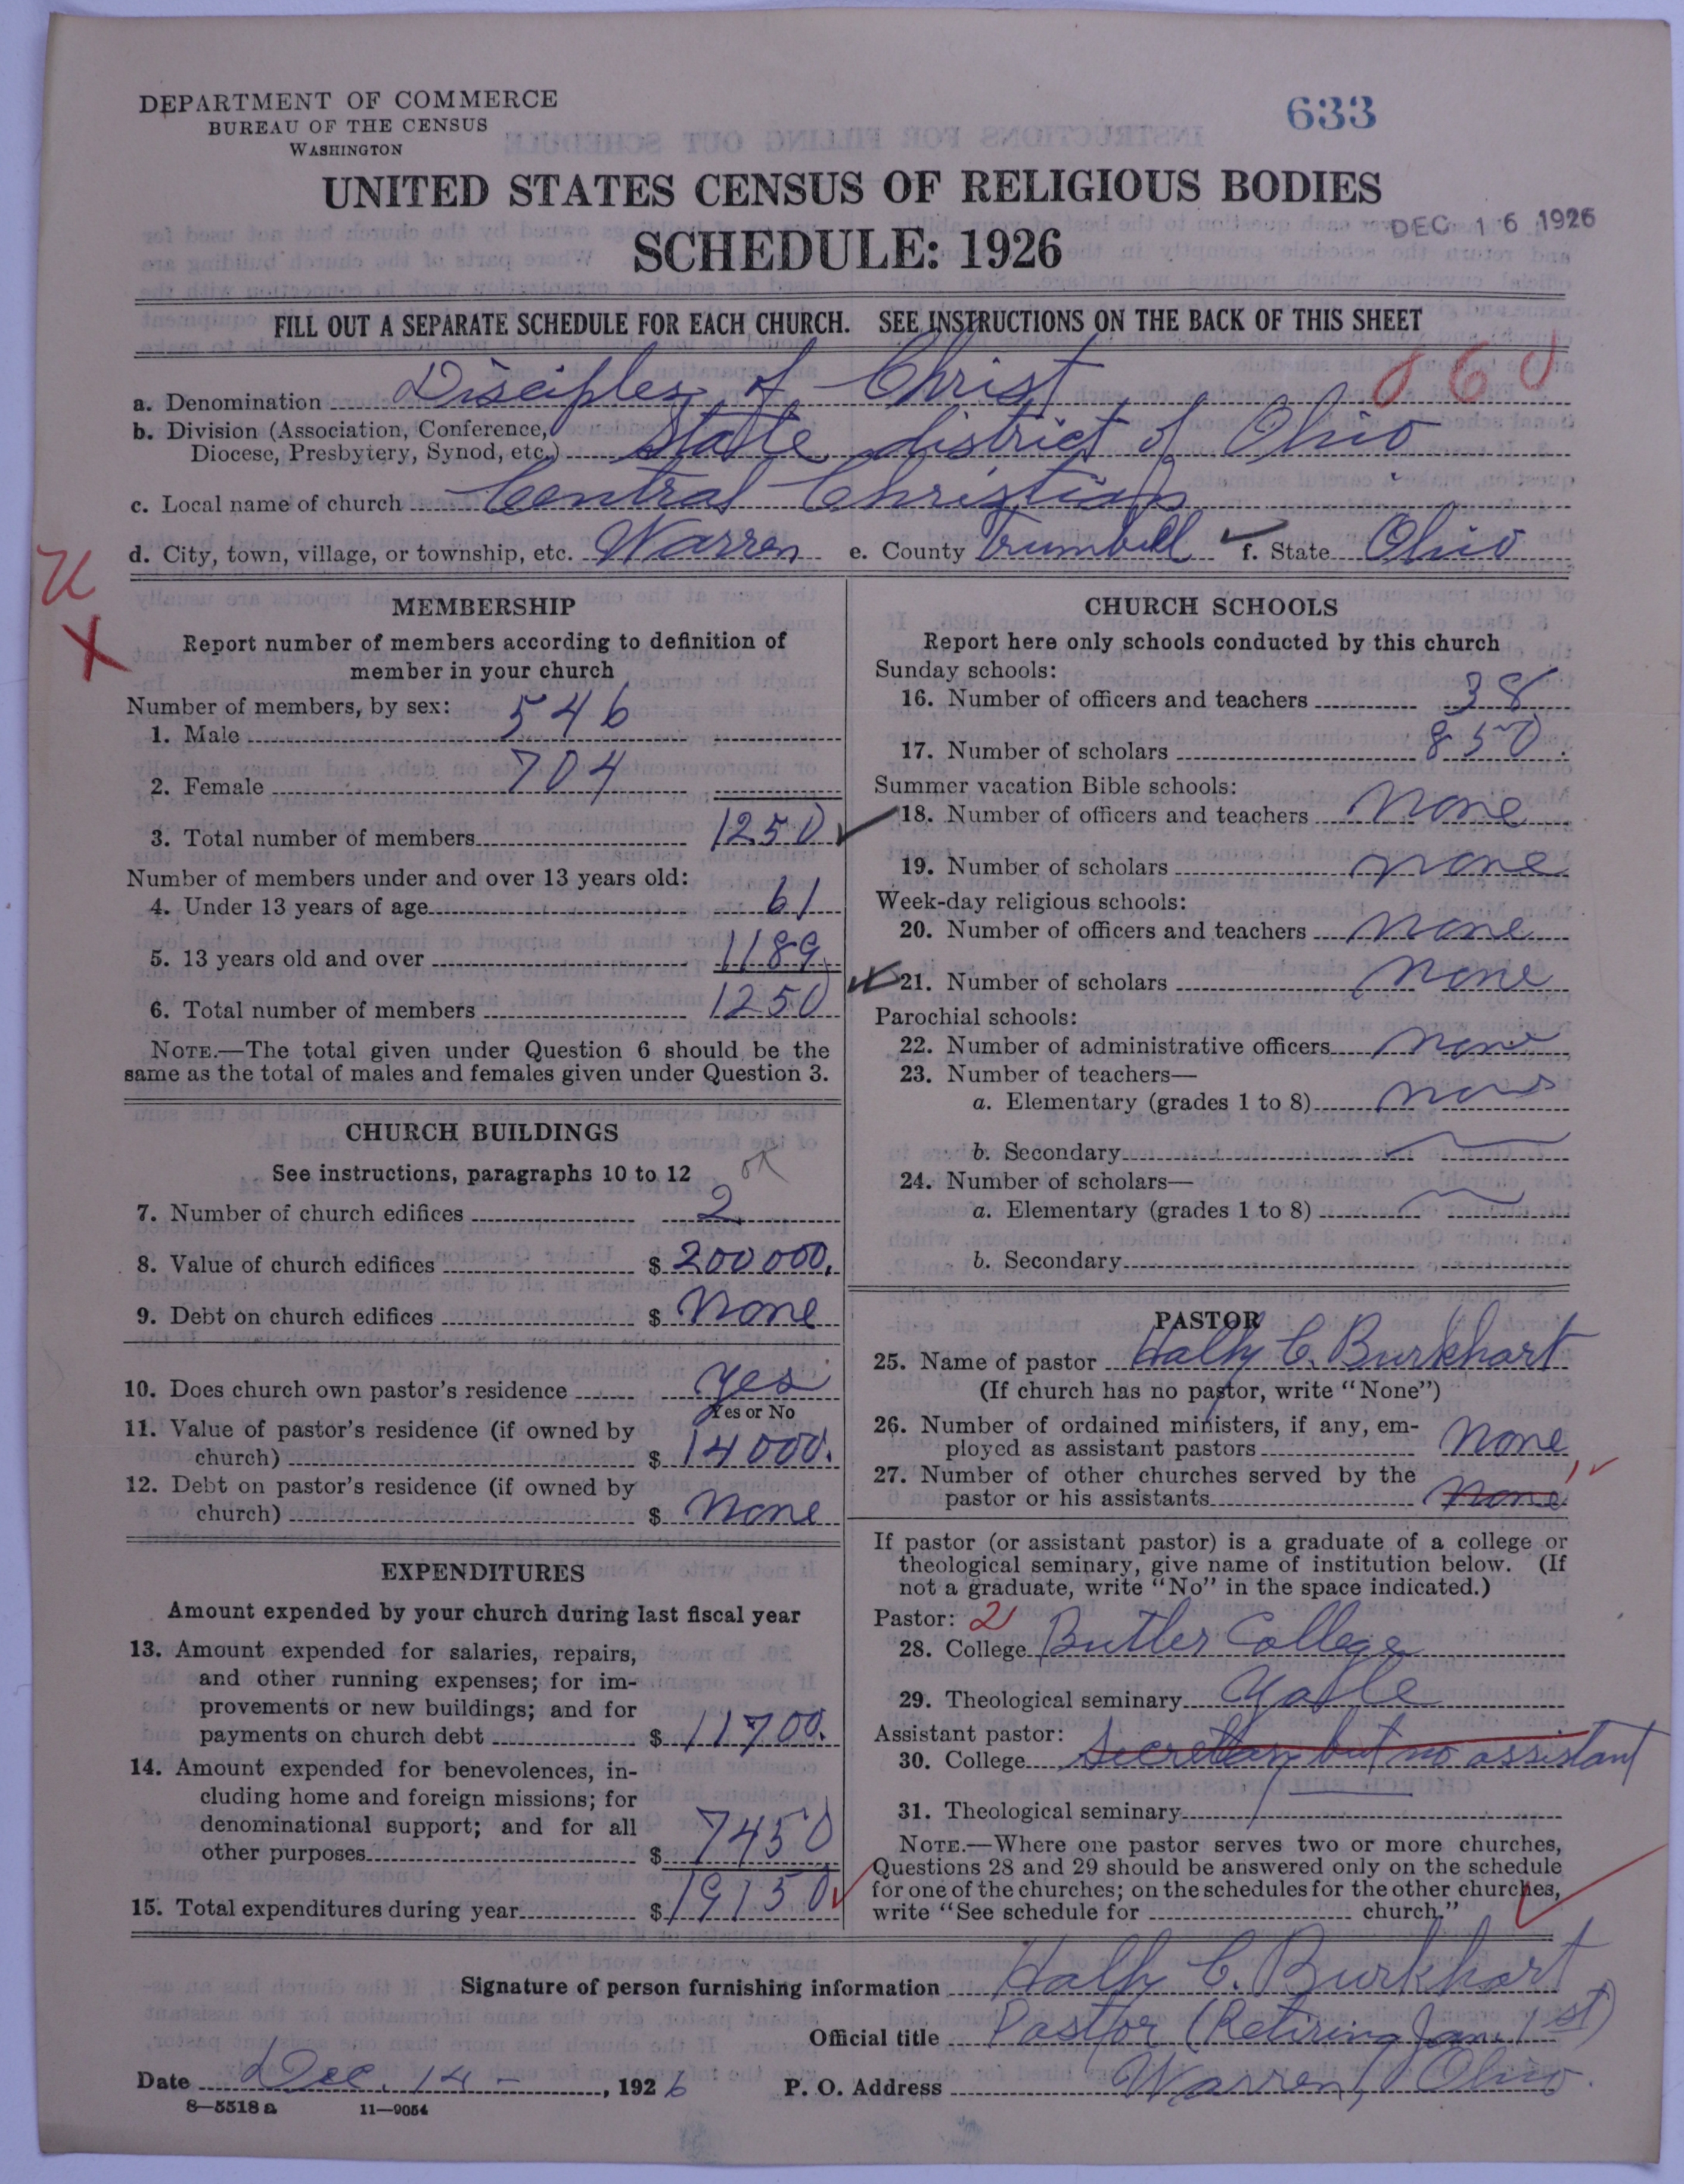 DEPARTMENT OF COMMERCE
BUREAU OF THE CENSUS
WASHINGTON
633
UNITED STATES CENSUS OF RELIGIOUS BODIES
SCHEDULE: 1926
DEC 16 1926
FILL OUT A SEPARATE SCHEDULE FOR EACH CHURCH. SEE INSTRUCTIONS ON THE BACK OF THIS SHEET
a. Denomination Disciples of Christ
b. Division (Association, Conference, Diocese, Presbytery, Synod, etc.) State district of Ohio
c. Local name of church Central Christian
d. City, town, village, or township, etc. Warren e. County Trumbull f. State Ohio
MEMBERSHIP
Report number of members according to definition of
member in your church
Number of members, by sex:
1. Male 546
2. Female 704
3. Total number of members 1250
Number of members under and over 13 years old:
4. Under 13 years of age 61
5. 13 years old and over 1189
6. Total number of members 1250
NOTE.—The total given under Question 6 should be the
same as the total of males and females given under Question 3.
CHURCH BUILDINGS
See instructions, paragraphs 10 to 12 OK
7. Number of church edifices 2
8. Value of church edifices $ 200000.
9. Debt on church edifices $ None
10. Does church own pastor's residence yes
Yes or No
11. Value of pastor's residence (if owned by
church) $ 14000.
12. Debt on pastor's residence (if owned by
church) $ None
EXPENDITURES
Amount expended by your church during last fiscal year
13. Amount expended for salaries, repairs,
and other running expenses; for im-
provements or new buildings; and for
payments on church debt $ 11700.
14. Amount expended for benevolences, in-
cluding home and foreign missions; for
denominational support; and for all
other purposes $ 7450
15. Total expenditures during year $ 19150
CHURCH SCHOOLS
Report here only schools conducted by this church
Sunday schools:
16. Number of officers and teachers 38
17. Number of scholars 850
Summer vacation Bible schools:
18. Number of officers and teachers None
19. Number of scholars None
Week-day religious schools:
20. Number of officers and teachers None
21. Number of scholars None
Parochial schools:
22. Number of administrative officers None
23. Number of teachers—
a. Elementary (grades 1 to 8) None
b. Secondary
24. Number of scholars—
a. Elementary (grades 1 to 8)
b. Secondary
PASTOR
25. Name of pastor C. Burkhart
(If church has no pastor, write "None")
26. Number of ordained ministers, if any, em-
ployed as assistant pastors None
27. Number of other churches served by the
pastor or his assistants None
If pastor (or assistant pastor) is a graduate of a college or
theological seminary, give name of institution below. (If
not a graduate, write "No" in the space indicated.)
Pastor: 2
28. College Butler College
29. Theological seminary Yale
Assistant pastor:
30. College Secretary but no assistant
31. Theological seminary
NOTE.—Where one pastor serves two or more churches,
Questions 28 and 29 should be answered only on the schedule
for one of the churches; on the schedules for the other churches,
write "See schedule for church."
Signature of person furnishing information C. Burkhart
Official title Pastor (Retiring Jan. 1st)
Date Dec. 14 - , 1926 P. O. Address Warren, Ohio.
8—5518a 11—9054